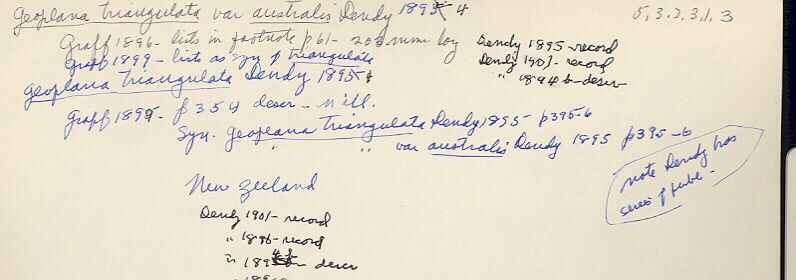 Geoplana triangulata var australis Dendy 1895-4
5,3.2.3.1.3
Graff 1896 - lists in footnote p61 - 20 mm log
Dendy 1895 - record
Graff 1899 - lists as syn of triangulata
Dendy 1901 - record
" 1894 b - descr
Geoplana triangulata Dendy 1895
Graff 1899 - p 354 descr - n ill.
Syn. Geoplana triangulata Dendy 1895 - p395-6
" " var australis Dendy 1895 p395-6
note Dendy has
series of publ.
New Zeeland
Dendy 1901 - record
" 1896 - record
" 189 descr